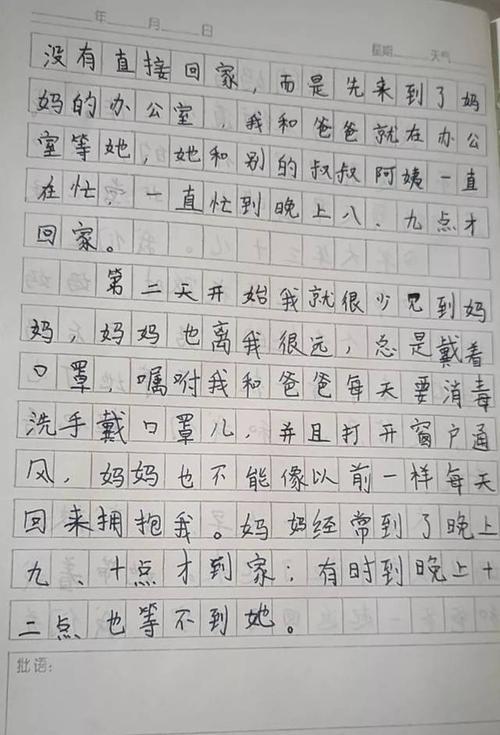 年 月 日
星期 天气
没有直接回家,而是先来到了妈
妈的办公室,我和爸爸就在办公
室等她,她和别的叔叔阿姨一直
在忙。一直忙到晚上八、九点才
回家。
第二天开始我就很少见到妈
妈,妈妈也离我很远,总是戴着
口罩,嘱咐我和爸爸每天要消毒
洗手戴口罩儿,并且打开窗户通
风,妈妈也不能像以前一样每天
回来拥抱我。妈妈经常到了晚上
九、十点才到家;有时到晚上十
二点也等不到她。
批语: